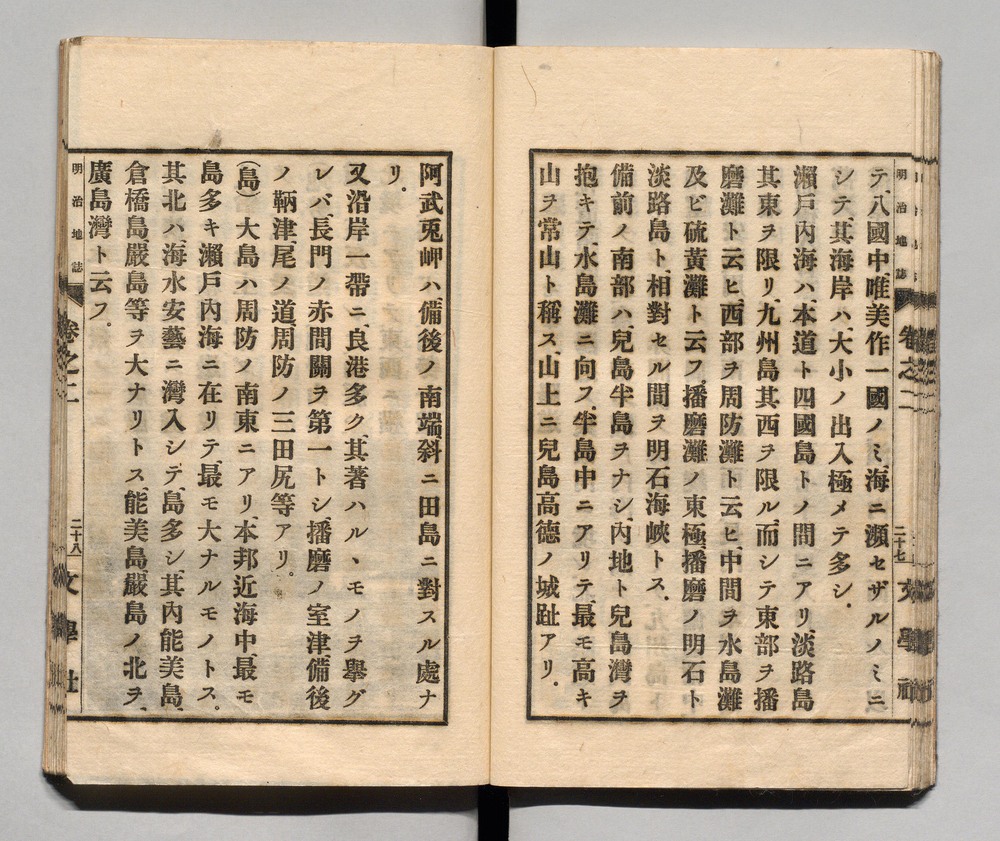 テ、八國中、唯美作一國ノミ、海ニ瀕セザルノミニ
シテ、其海岸ハ、大小ノ出入極メテ多シ.
瀨戸內海ハ、本道ト四國島トノ間ニアリ、淡路島
其東ヲ限リ、九州島其西ヲ限ル、而シテ東部ヲ播
磨灘ト云ヒ、西部ヲ周防灘ト云ヒ、中間ヲ水島灘
及ビ硫黃灘ト云フ、播磨灘ノ東極、播磨ノ明石ト
淡路島ト、相對セル間ヲ明石海峽トス.
備前ノ南部ハ、兒島半島ヲナシ、內地ト兒島灣ヲ
抱キテ、水島灘ニ向フ、半島中ニアリテ、最モ高キ
山ヲ常山ト稱ス、山上ニ兒島高德ノ城趾アリ.
明治地誌 卷之二 二十七 文學社
阿武兎岬ハ、備後ノ南端、斜ニ田島ニ對スル處ナ
リ.
又沿岸一帶ニ、良港多ク、其著ハルヽモノヲ擧グ
レバ、長門ノ赤間關ヲ第一トシ、播磨ノ室津、備後
ノ鞆津、尾ノ道、周防ノ三田尻等アリ。
(島) 大島ハ周防ノ南東ニアリ、本邦近海中、最モ
島多キ瀨戸內海ニ在リテ、最モ大ナルモノトス。
其北ハ、海水安藝ニ灣入シテ、島多シ、其內能美島、
倉橋島、嚴島等ヲ大ナリトス、能美島嚴島ノ北ヲ、
廣島灣ト云フ.
明治地誌 卷之二 二十八 文學社